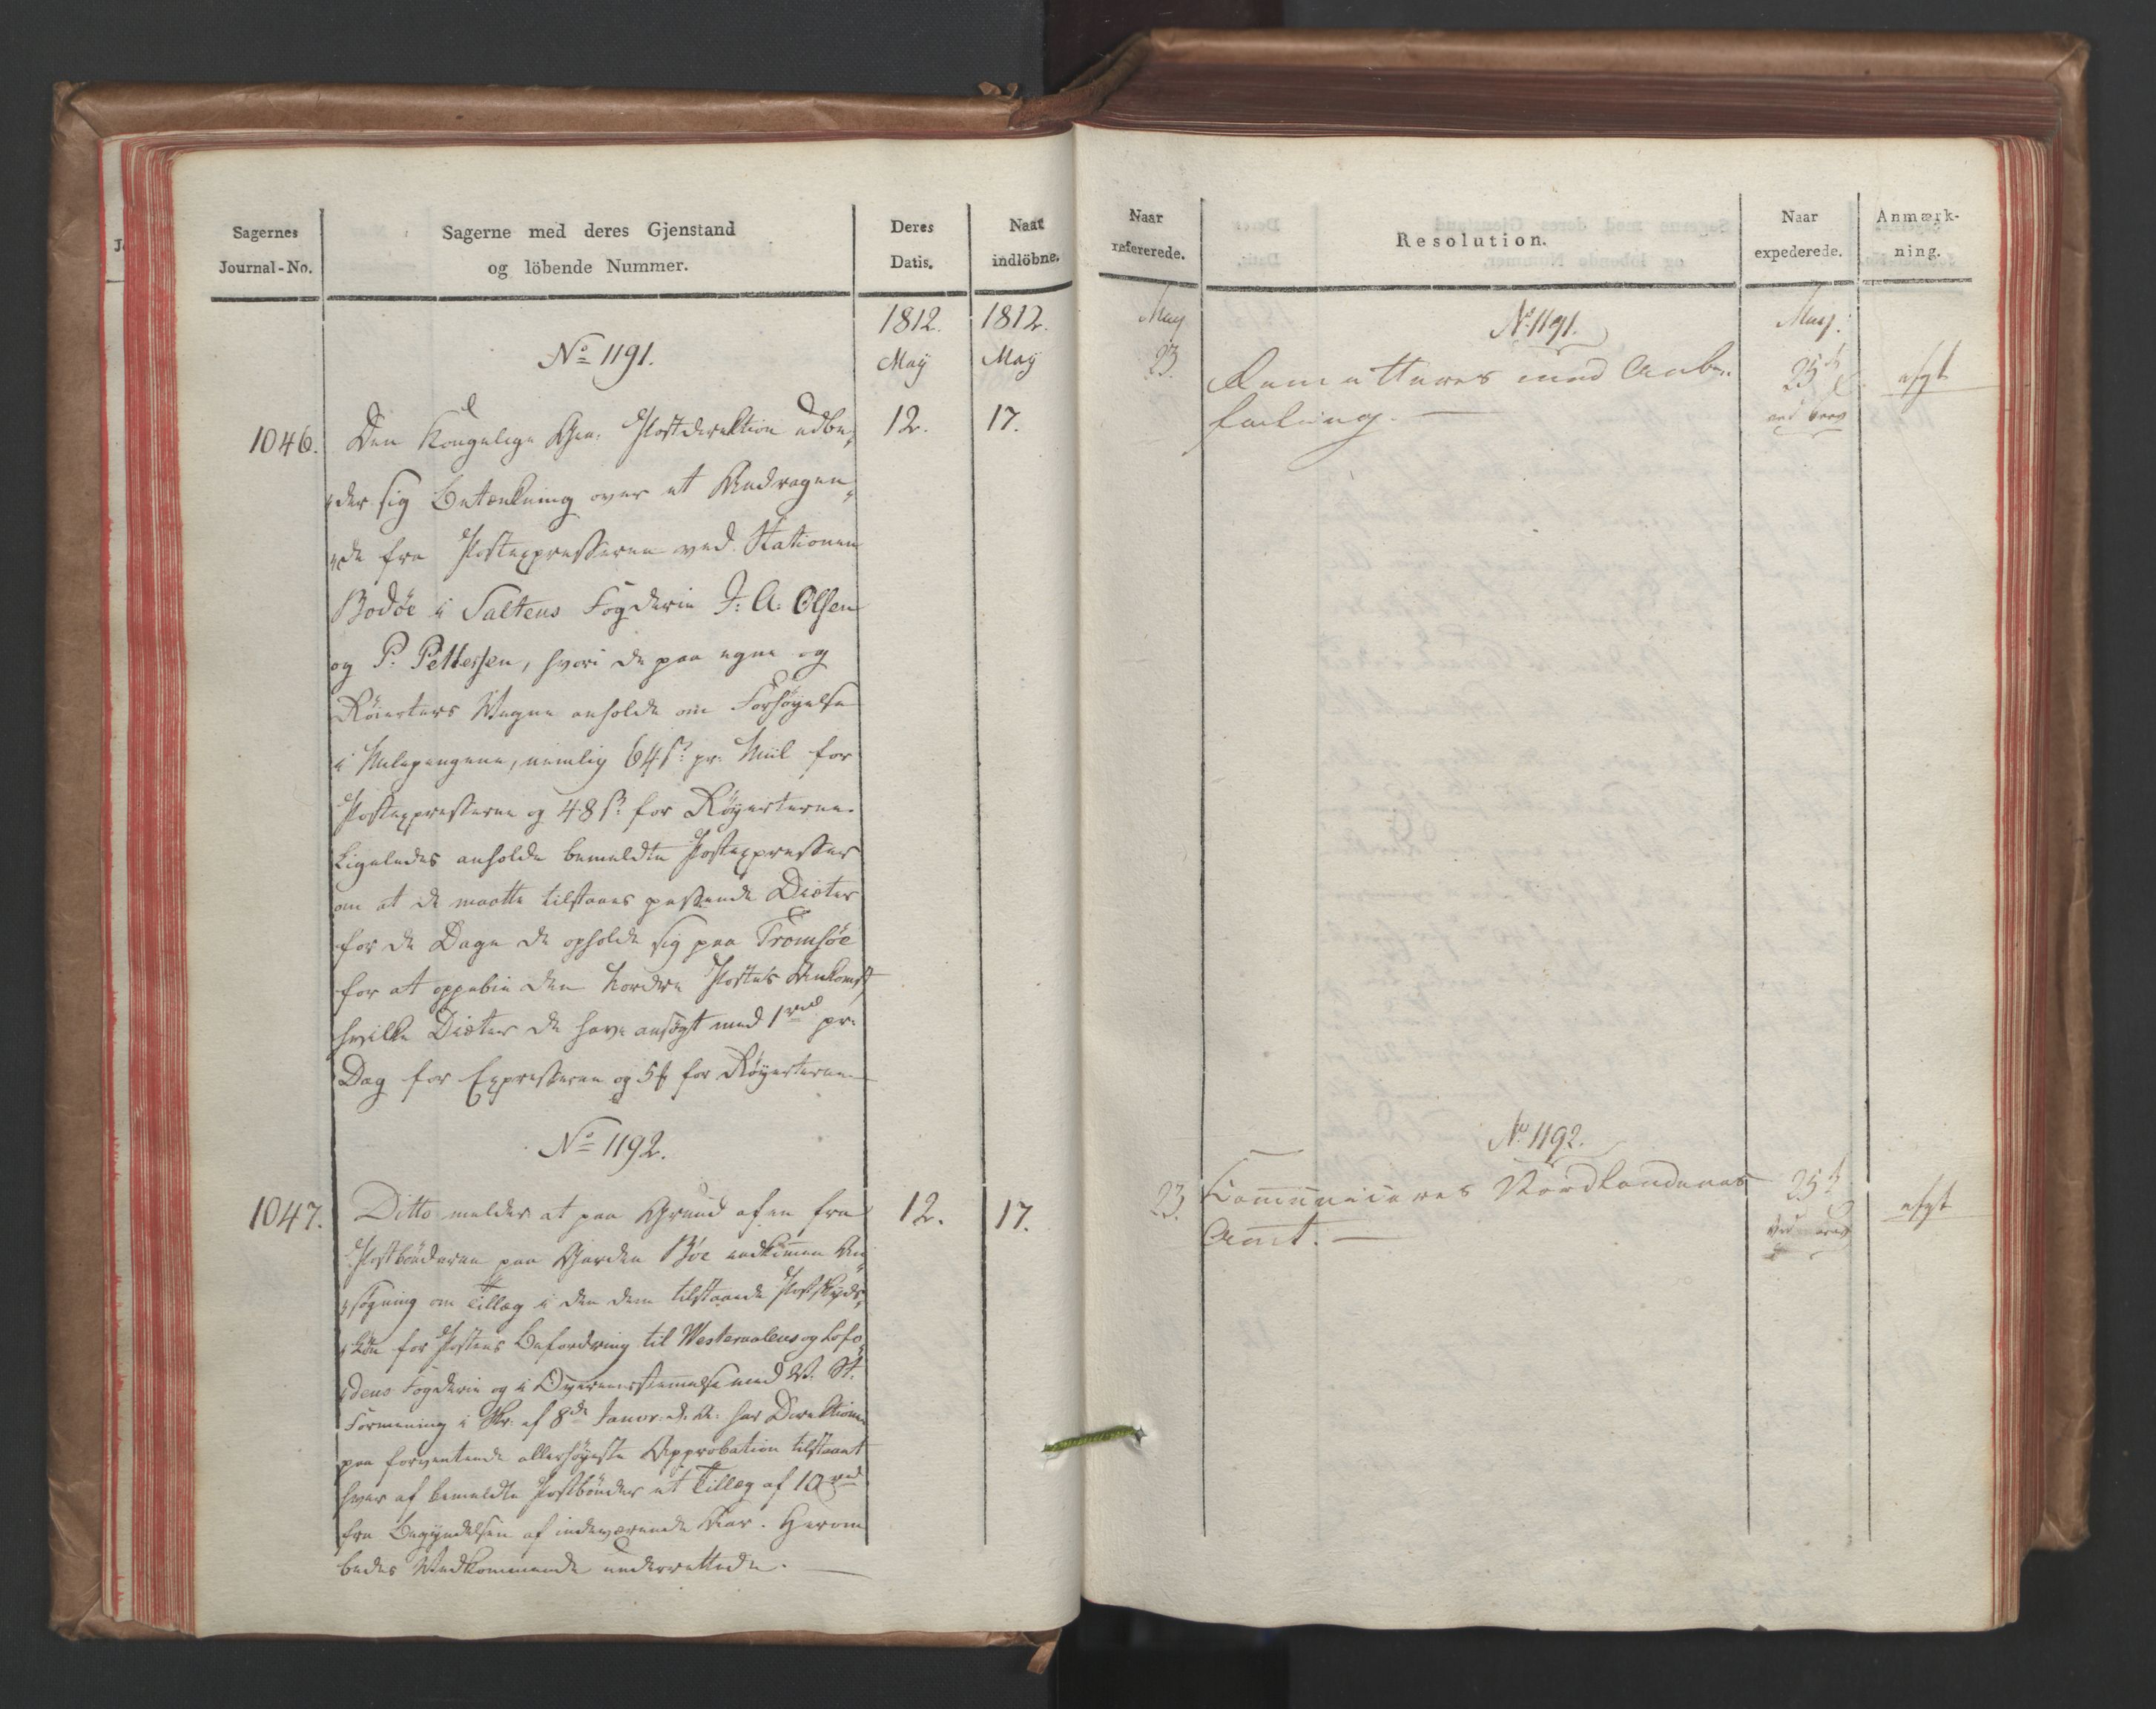 Sagernes
Journal-No.
Sagerne med deres Gjenstand
og löbende Nummer.
Deres
Datis.
Naar
indlöbne.
1812.
1812.
May
May
No 1191.
1046.
12.
17.
Den Kongelige Gen: Postdirektion udbe,
,der sig Betænkning over et Andragen,
,de fra Postexpresserne ved Stationen
Bodöe i Saltens Fogderie J: A: Olsen
og P: Pettersen, hvori de paa egne og
Röiesters Vegne anholde om Forhöyelse
i Milepengene, nemlig 64 s: pr: Miil for
Postexpresserne og 48 s: for Röyesterne.
Ligeledes anholde bemeldte Postexpresser
om at de maatte tilstaaes passende Diæter
for de Dage de opholde sig paa Tromsöe
for at oppebie den Nordre Postes Ankomst
hvilke Diæter de have ansögt med 1 rd pr:
Dag for Expresserne og 5 for Röyesterne
No 1192.
1047.
12.
17.
Ditto melder at paa Grund af en fra
Postbönderne paa Garden Böe indkommen An,
,søgning om Tillæg i den dem tilstaaede Postskyds,
,lön for Postens Befordring til Westeraalens og Lofo,
,dens Fogderie og i Overeensstemmelse med St.
Formening i Skr: af 8de Januar d: A: har Direktionen
paa forventende allerhöyeste Approbation tilstaaet
hver af bemeldte Postbönder et Tillæg af 10 rd
fra Begyndelsen af indeværende Aar. Herom
bedes Vedkommende underrettede.
Naar
refererede.
Resolution.
Naar
expederede.
Anmærk-
ning.
May
No 1191.
May.
23.
Remitteres med Anbe,
faling.
25
afgt
No 1192.
23.
Communiceres Nordlandenes
Amt.
25
afgt